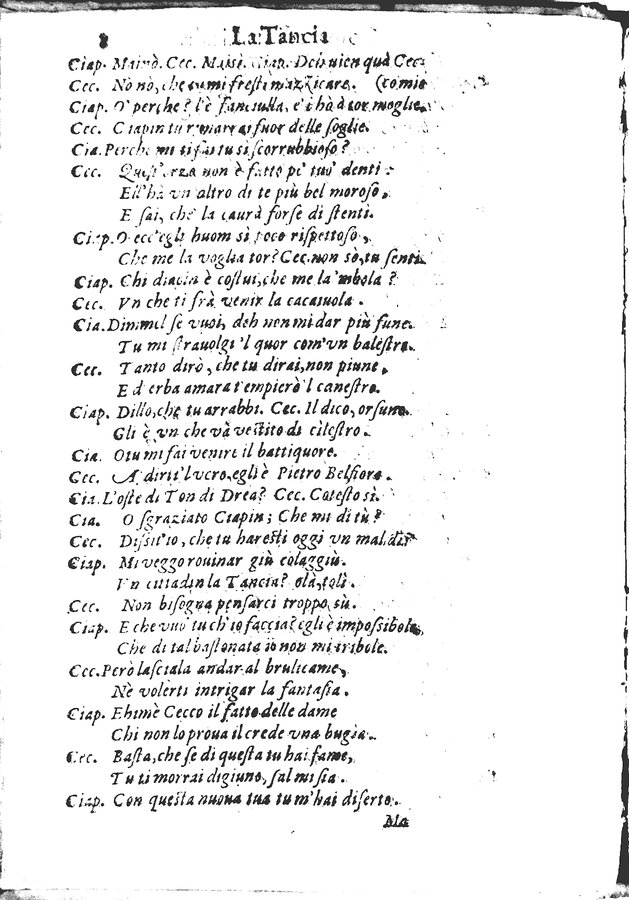 8 La Tancia
Ciap. Mainò. Cec. Maisì. Ciap. Deh vien quà Cec-
Cec. Nò nò, che tu mi fresti mazzicare. (comio
Ciap. O' perche? l'è fanciulla, e i hà à tor moglie.
Cec. Ciapin tu rimarrai fuor delle soglie.
Cia. Perche mi ti fai tu sì scorrubbioso?
Cec. Quest' orza non è fatto pe' tuo' denti:
Ell'hà vn altro di te più bel moroso,
E sai, che la caurà forse di stenti.
Ciap. O ecc'egli huom sì poco rispettoso,
Che me la voglia tor? Cec. non sò, tu senti.
Ciap. Chi diacin è costui, che me la 'mbola?
Cec. Vn che ti frà venir la cacaiuola.
Cia. Dimmel se vuoi, deh non mi dar più fune.
Tu mi strauolgi 'l quor com'vn balestro.
Cec. Tanto dirò, che tu dirai, non piune,
E d'erba amara t'empierò 'l canestro.
Ciap. Dillo, che tu arrabbi. Cec. Il dico, orsune
Gli è vn che và vestito di cilestro.
Cia. O tu mi fai venire il battiquore.
Cec. A dirti 'l vero, egli è Pietro Belfiore.
Cia. L'oste di Ton di Drea? Cec. Cotesto sì.
Cia. O sgraziato Ciapin; Che mi di tù?
Cec. Diss'io, che tu haresti oggi vn mal dì?
Ciap. Mi veggo rouinar giù colaggiù.
Vn cittadin la Tancia? olà, tolì.
Cec. Non bisogna pensarci troppo sù.
Ciap. E che vuo' tu ch'io faccia? egli è impossibole,
Che di tal bastonata io non mi tribole.
Cec. Però lasciala andar al brulicame,
Nè volerti intrigar la fantasia.
Ciap. Ehimè Cecco il fatto delle dame
Chi non lo proua il crede vna bugia.
Cec. Basta, che se di questa tu hai fame,
Tu ti morrai digiuno, sal mi sia.
Ciap. Con questa nuoua tua tu m'hai diserto.
Ma